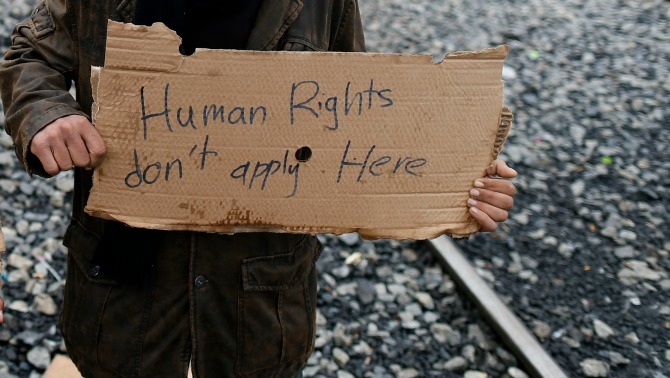 Human Rights
don't apply Here